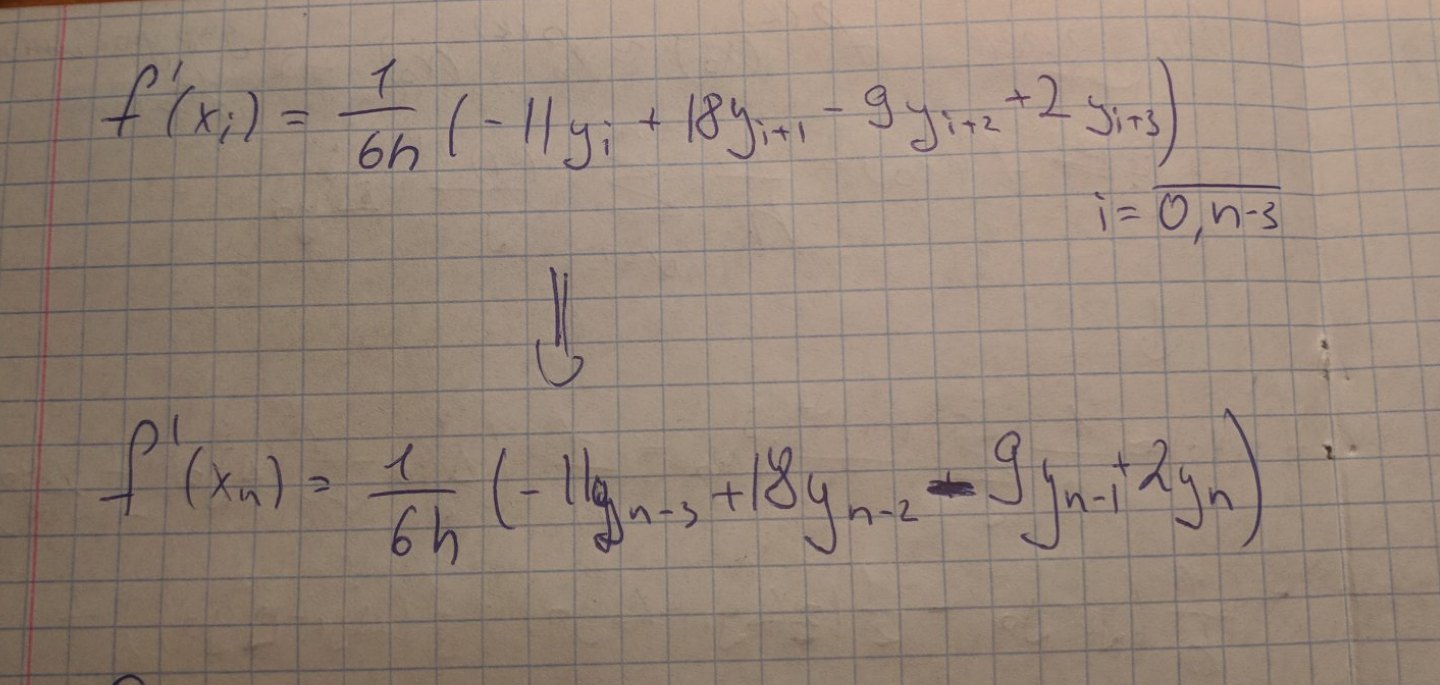 f'(xᵢ) = 1/6h (-11yᵢ + 18yᵢ₊₁ - 9yᵢ₊₂ + 2yᵢ₊₃)
i = 0, n-3
⇓
f'(xₙ) = 1/6h (-11yₙ₋₃ + 18yₙ₋₂ - 9yₙ₋₁ + 2yₙ)